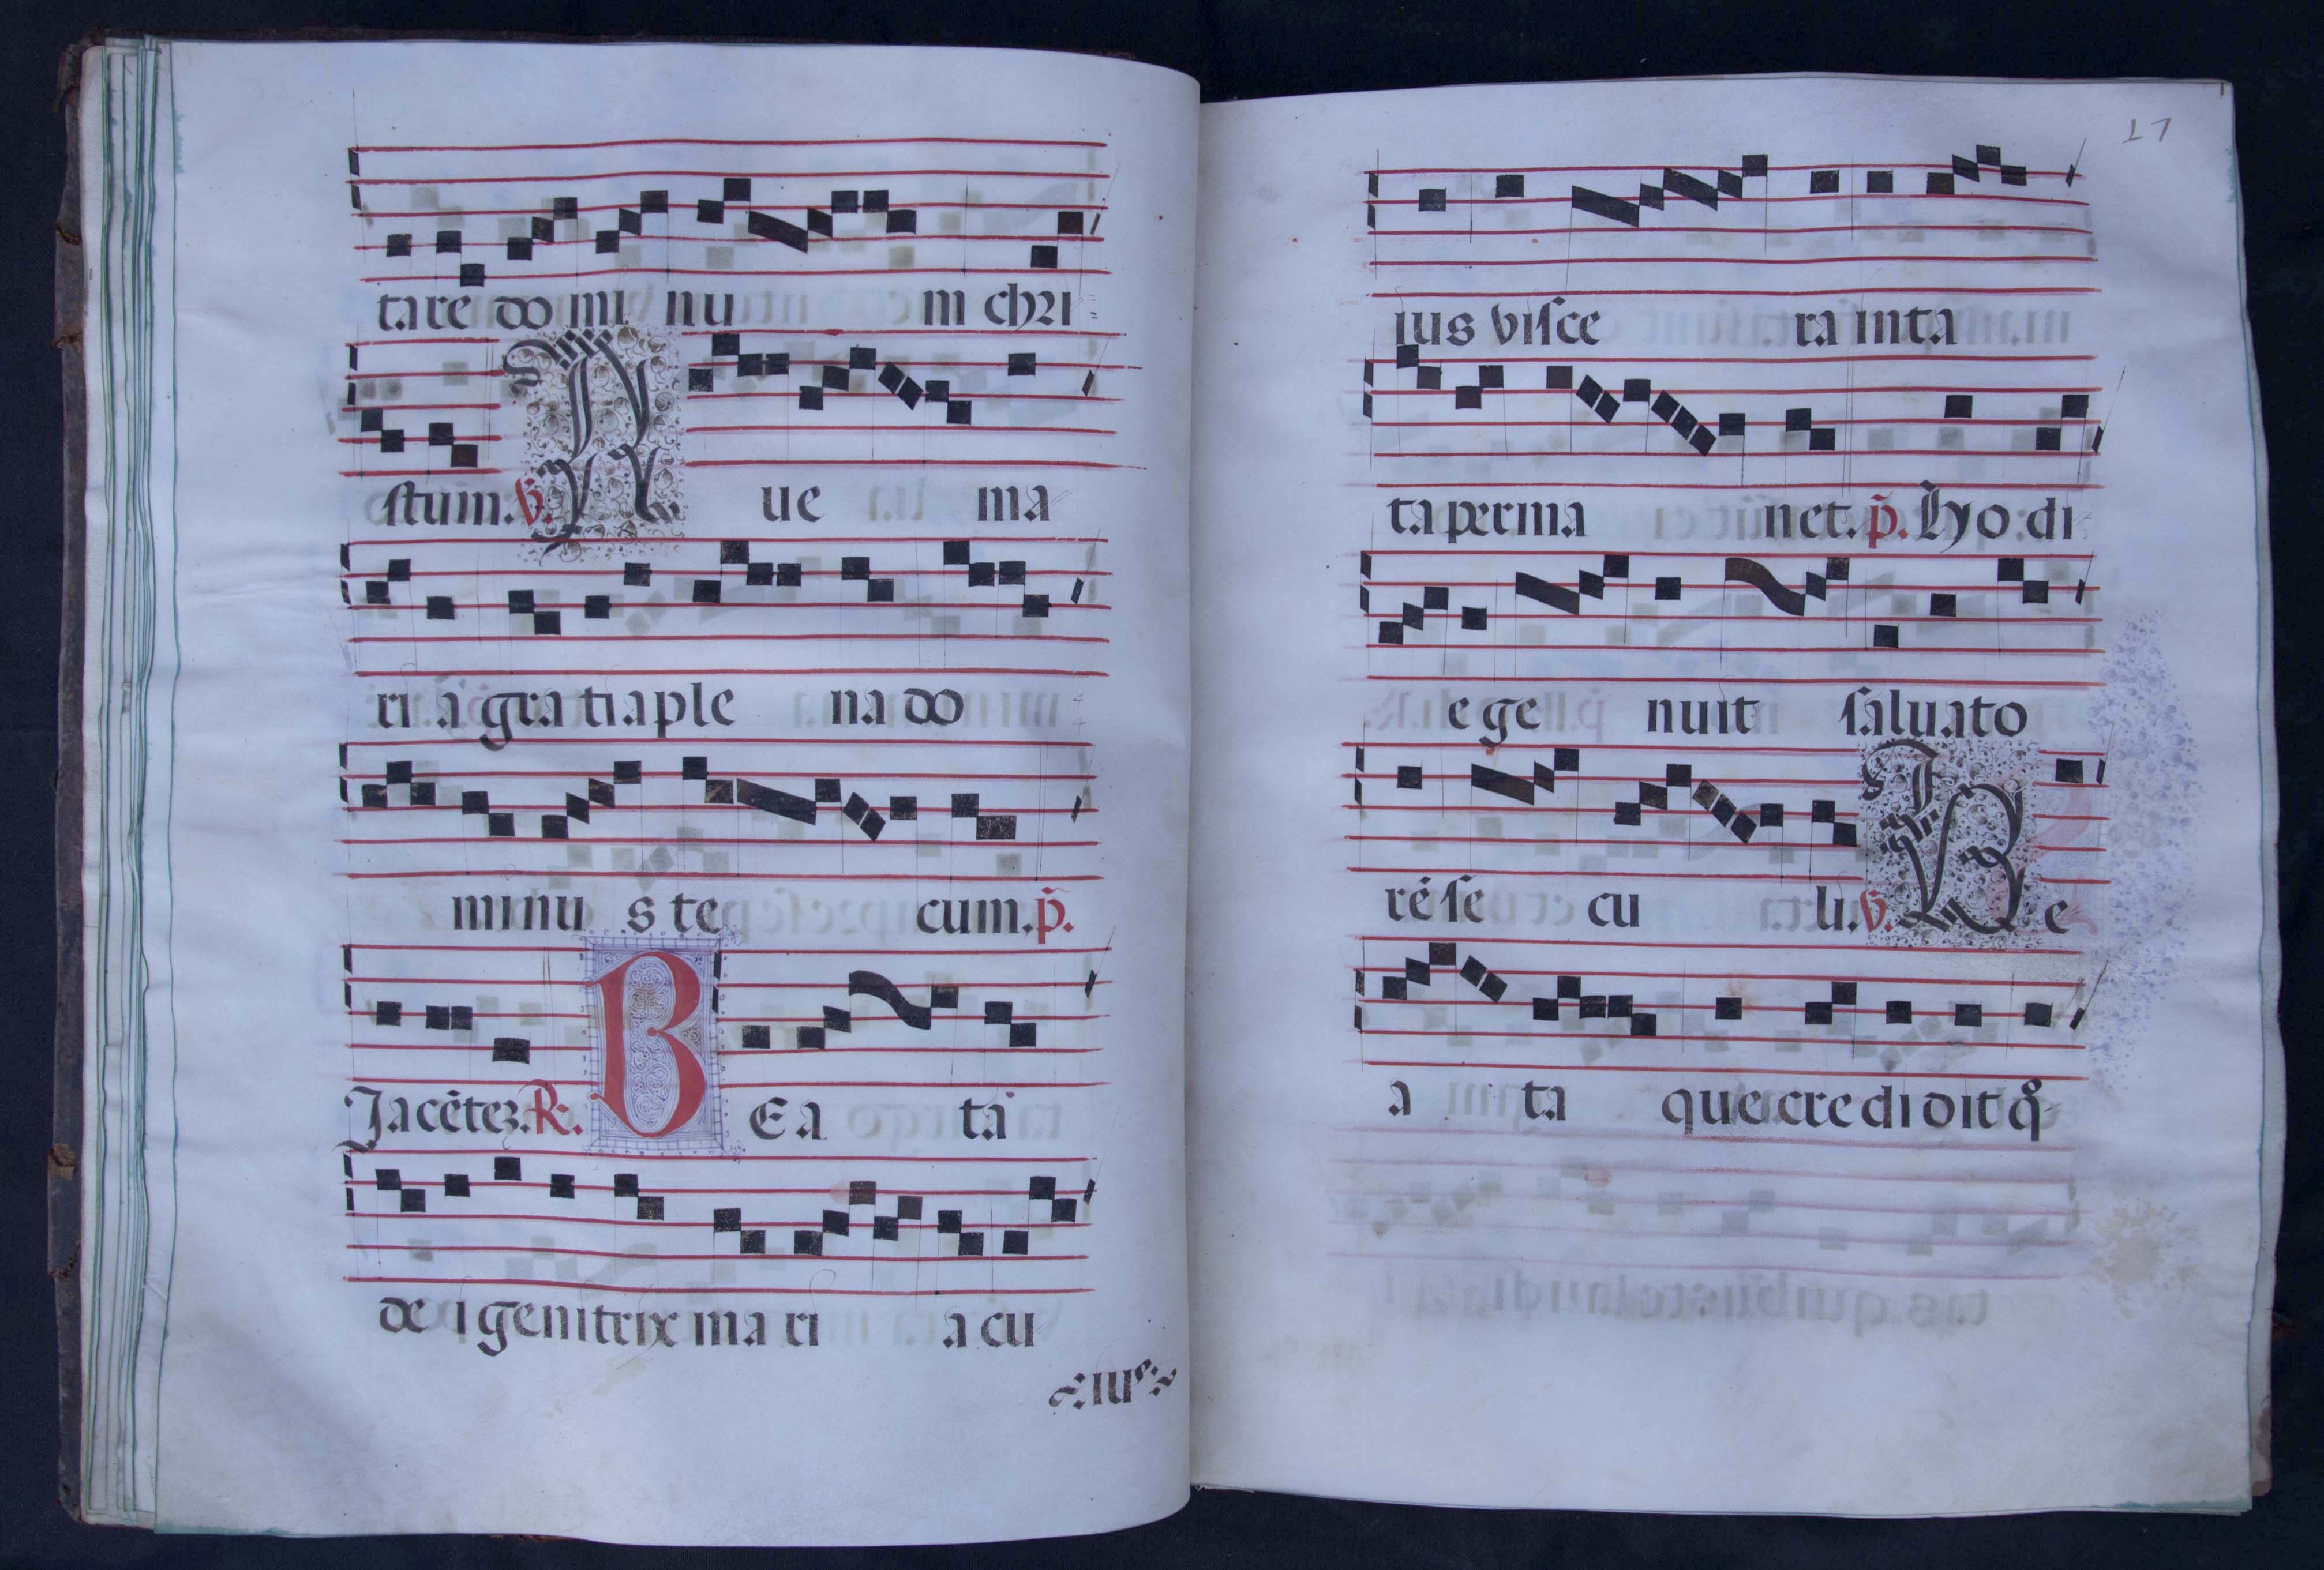 tare do mi nu m chri
stum. v. A ue ma
ri a gra tia ple na do
minu s te cum. p̄.
Jacētez. R. B E a ta
de i genitrix ma ri a cu
ius
17
ius visce ra inta
ta perma net. p̄. Hyo di
e ge nuit saluato
rē se cu li. v. B e
a ta que credidit qō